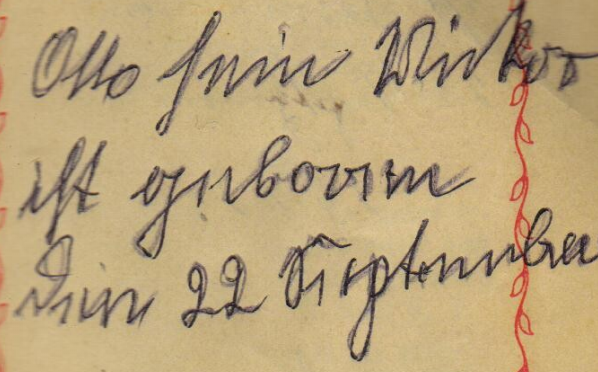 Otto sein Wiktor
ist geboren
den 22 September